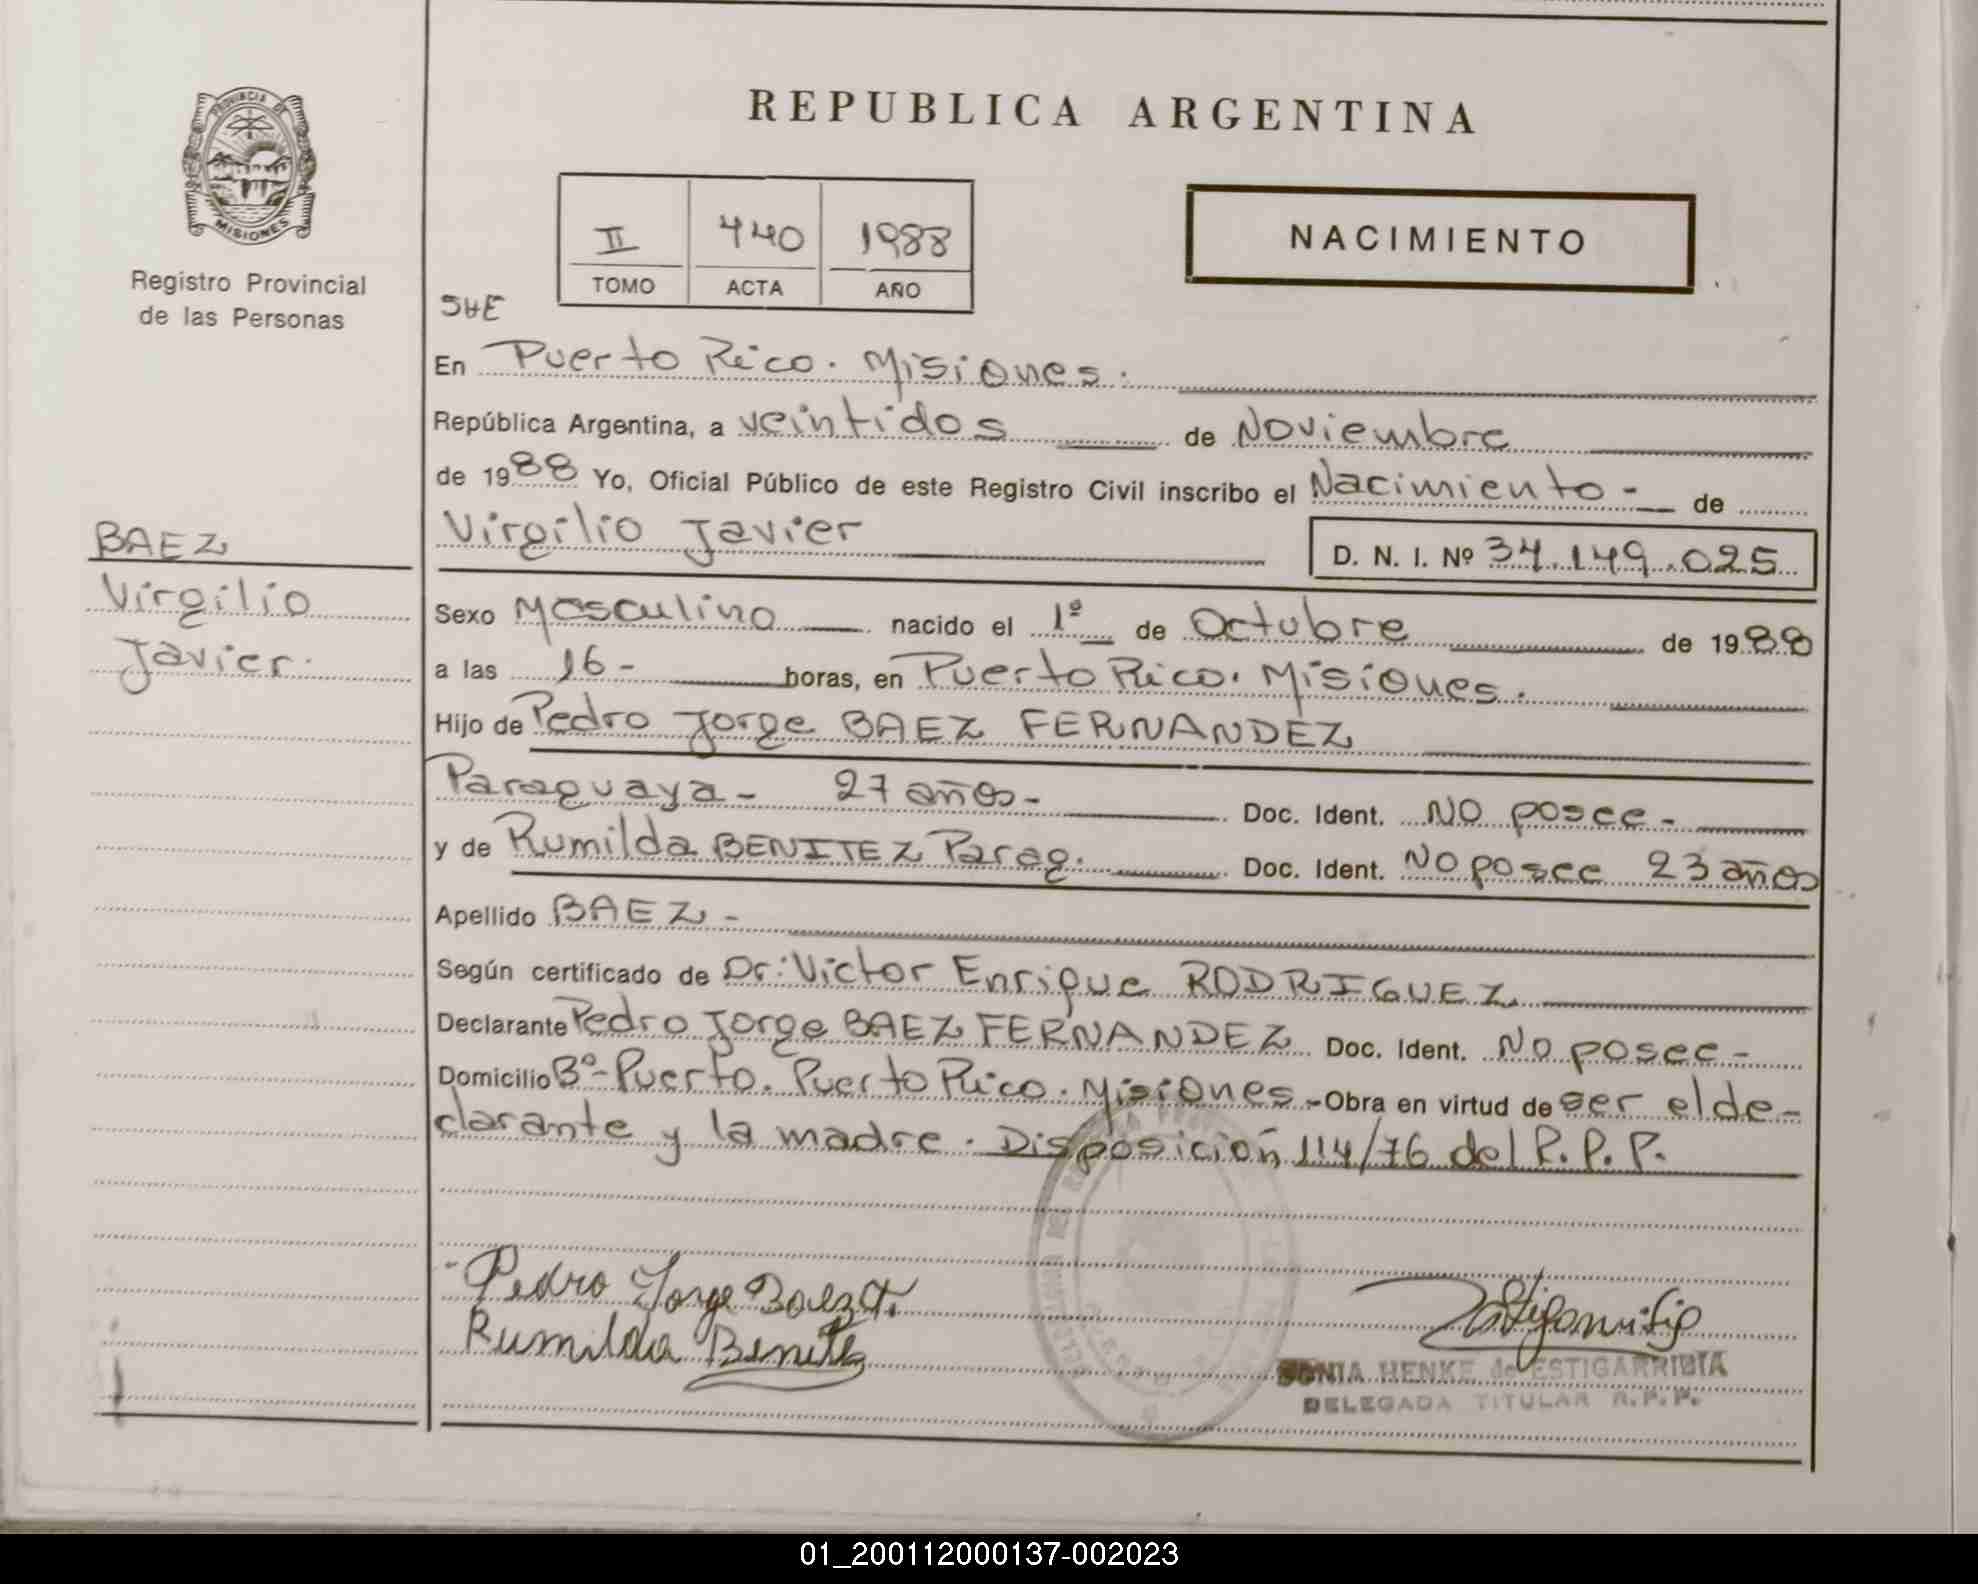 REPUBLICA ARGENTINA
PROVINCIA DE
MISIONES
Registro Provincial
de las Personas
II 440 1988
TOMO ACTA AÑO
NACIMIENTO
SHE
En Puerto Rico. Misiones.
República Argentina, a veintidos de Noviembre
de 1988 Yo, Oficial Público de este Registro Civil inscribo el Nacimiento - de
Virgilio Javier
D. N. I. Nº 34.149.025
BAEZ
Virgilio
Javier.
Sexo Masculino nacido el 1º de Octubre de 1988
a las 16- horas, en Puerto Rico. Misiones.
Hijo de Pedro Jorge BAEZ FERNANDEZ
Paraguaya - 27 años - Doc. Ident. No posee -
y de Rumilda BENITEZ Parag. Doc. Ident. No posee 23 años
Apellido BAEZ -
Según certificado de Dr: Victor Enrique RODRIGUEZ
Declarante Pedro Jorge BAEZ FERNANDEZ Doc. Ident. No posee -
Domicilio Bº- Puerto. Puerto Rico. Misiones - Obra en virtud de ser el de-
clarante y la madre. Disposición 114/76 del R. P. P.
Pedro Jorge Baez F.
Rumilda Benitez
SONIA HENKE de ESTIGARRIBIA
DELEGADA TITULAR R.P.P.
01_200112000137-002023